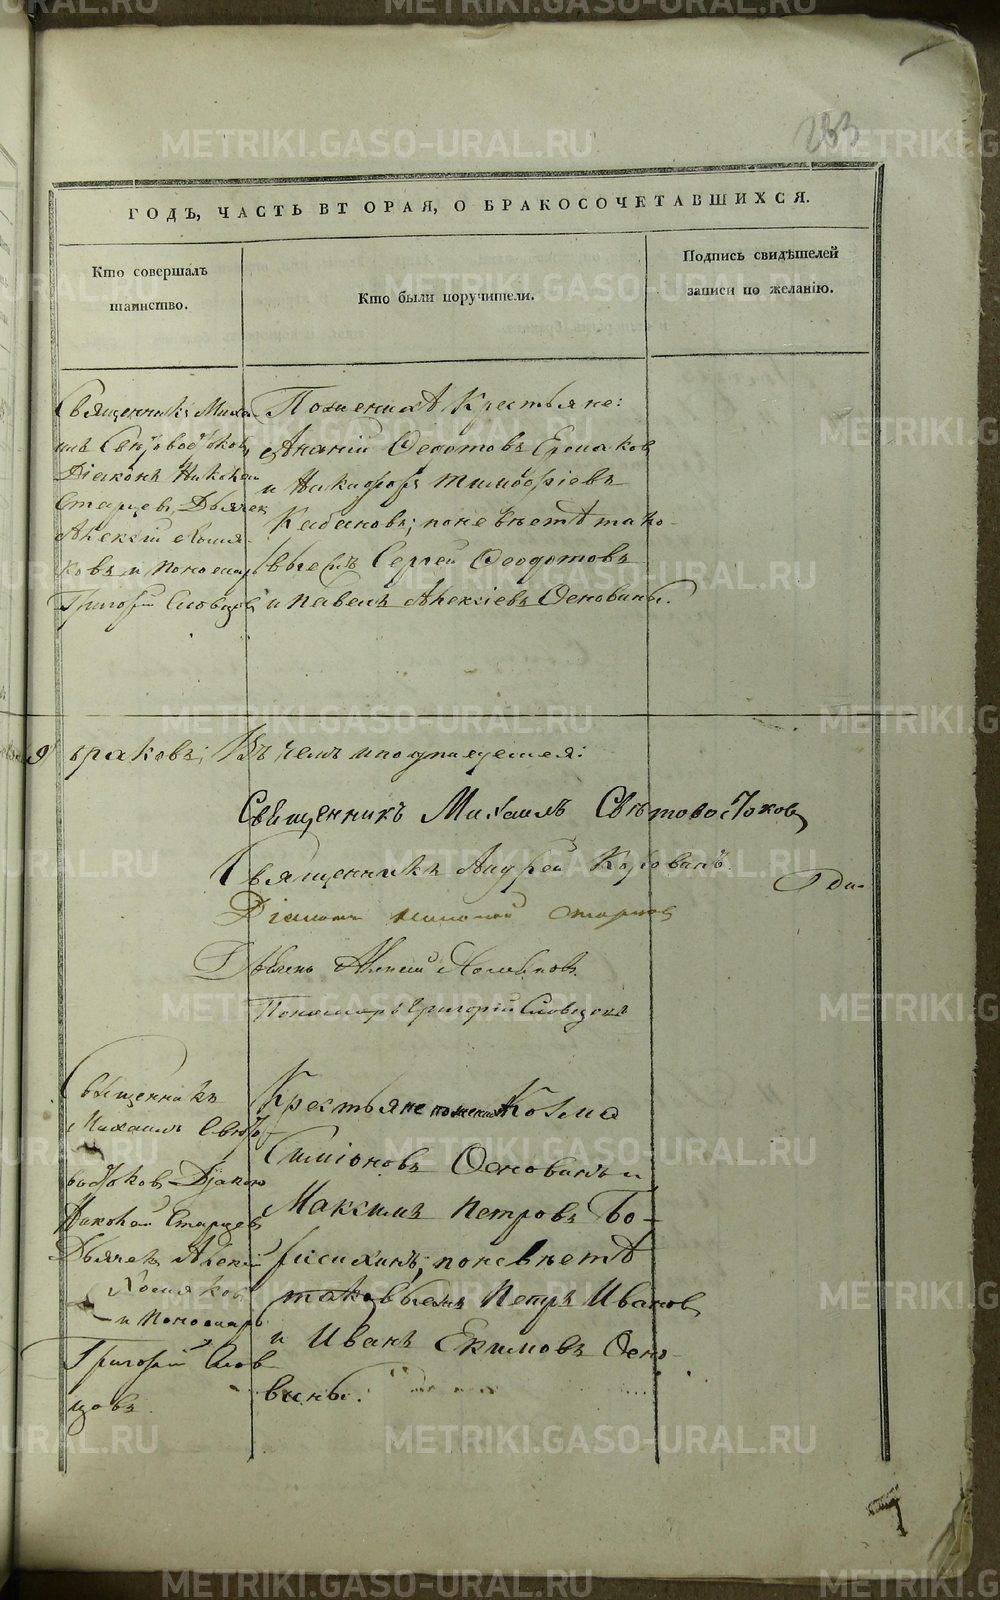 233
ГОДЪ, ЧАСТЬ ВТОРАЯ, О БРАКОСОЧЕТАВШИХСЯ.
Кто совершалъ
таинство.
Кто были поручители.
Подпись свидѣтелей
записи по желанію.
Священникъ Миха
илъ Свѣтовостоковъ
Діаконъ Николай
Старцевъ, Дьячек
Алексій Хомя-
ковъ и Пономарь
Григорій Словцовъ
По женихѣ Крестьяне:
Ананій Ѳедотовъ Ермаковъ
и Никифоръ Тимофѣевъ
Кабаковъ; по невѣстѣ тако-
выежъ Сергей Ѳеодотовъ
и Павелъ Алексіевъ Основины.
9 браковъ; Въ чемъ и подписуемся:
Священникъ Михаилъ Свѣтовостоковъ
Священникъ Андрей Коровинъ
Діаконъ Николай Старцов
Дьячекъ Алексей Хомяковъ
Пономарь Григорій Словцовъ
Священникъ
Михаилъ Свѣто-
востоковъ Діаконъ
Николай Старцевъ
Дьячекъ Алексій
Хомяковъ
и Пономарь
Григорій Слов-
цовъ
Крестьяне по женихѣ Козма
Симіоновъ Основинъ и
Максимъ Петровъ Бо-
рисихинъ; по невѣстѣ
таковыежъ Петръ Ивановъ
и Иванъ Екимовъ Осно-
вины.
METRIKI.GASO-URAL.RU